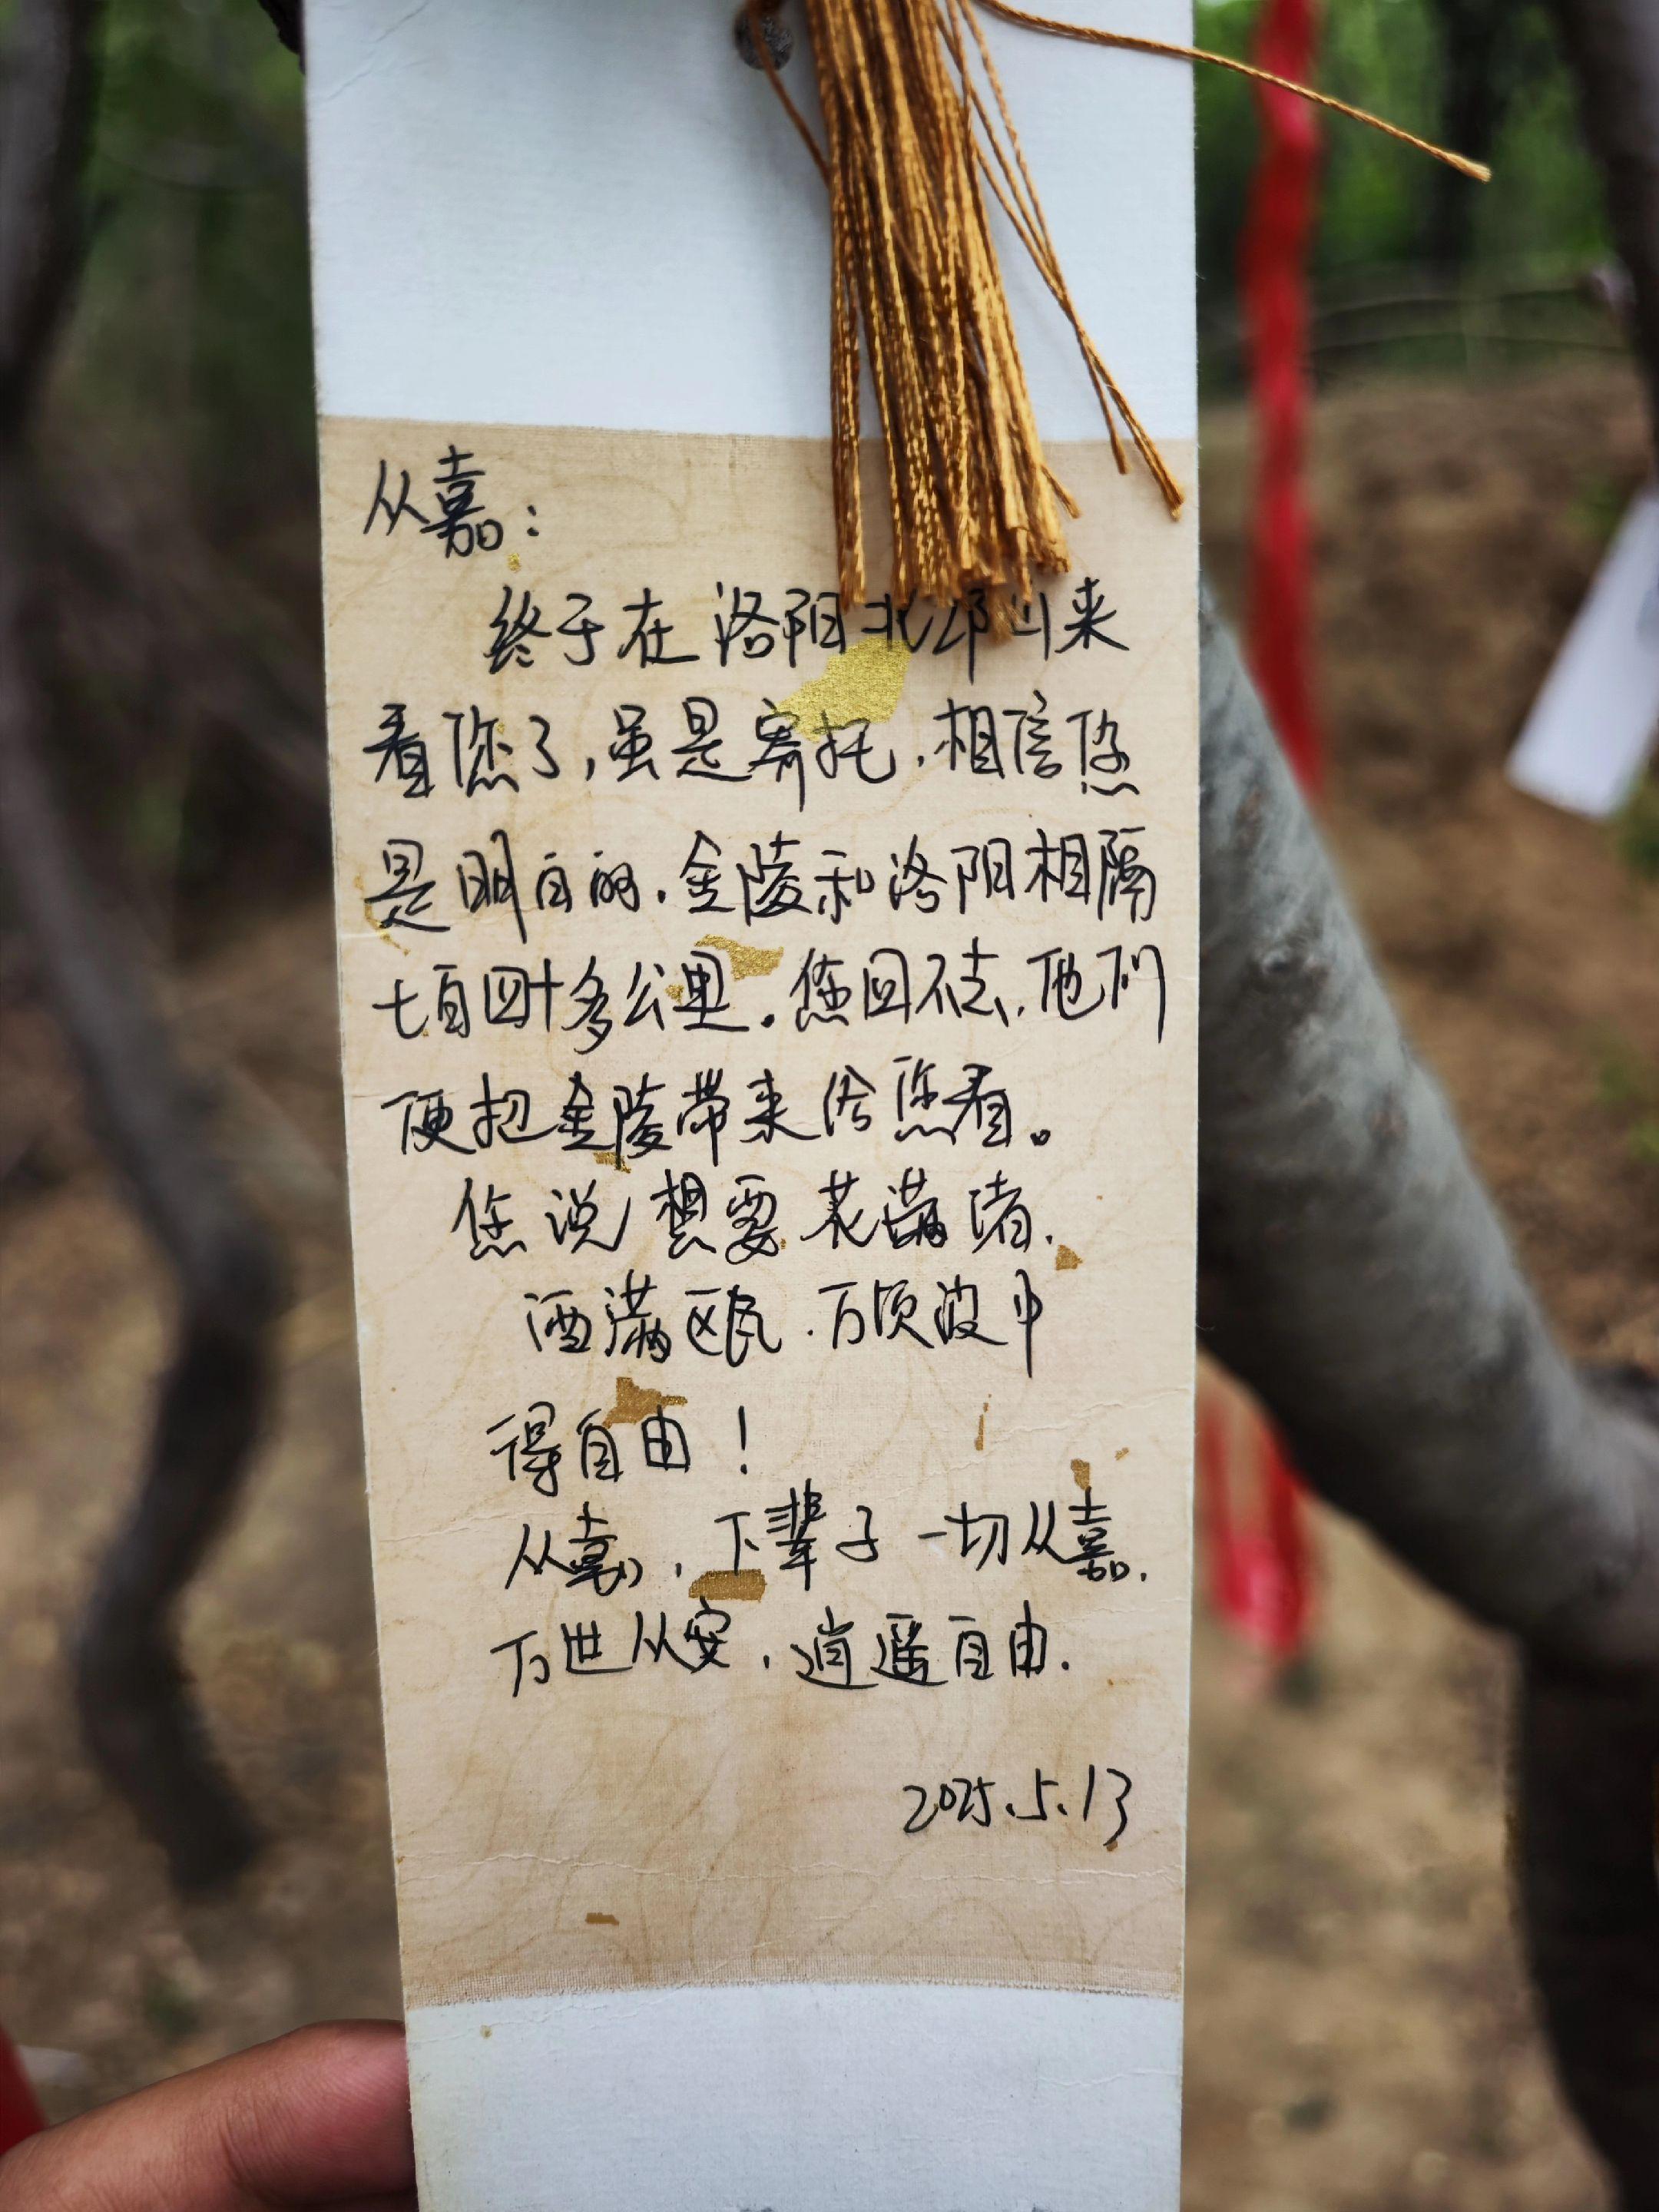 从嘉：
终于在洛阳北邙山来
看您了，虽是寄托，相信您
是明白的。金陵和洛阳相隔
七百四十多公里。您回不去，他们
便把金陵带来给您看。
您说想要花满渚，
酒满瓯，万顷波中
得自由！
从嘉，下辈子一切从嘉，
万世从安，逍遥自由。
2025.5.13